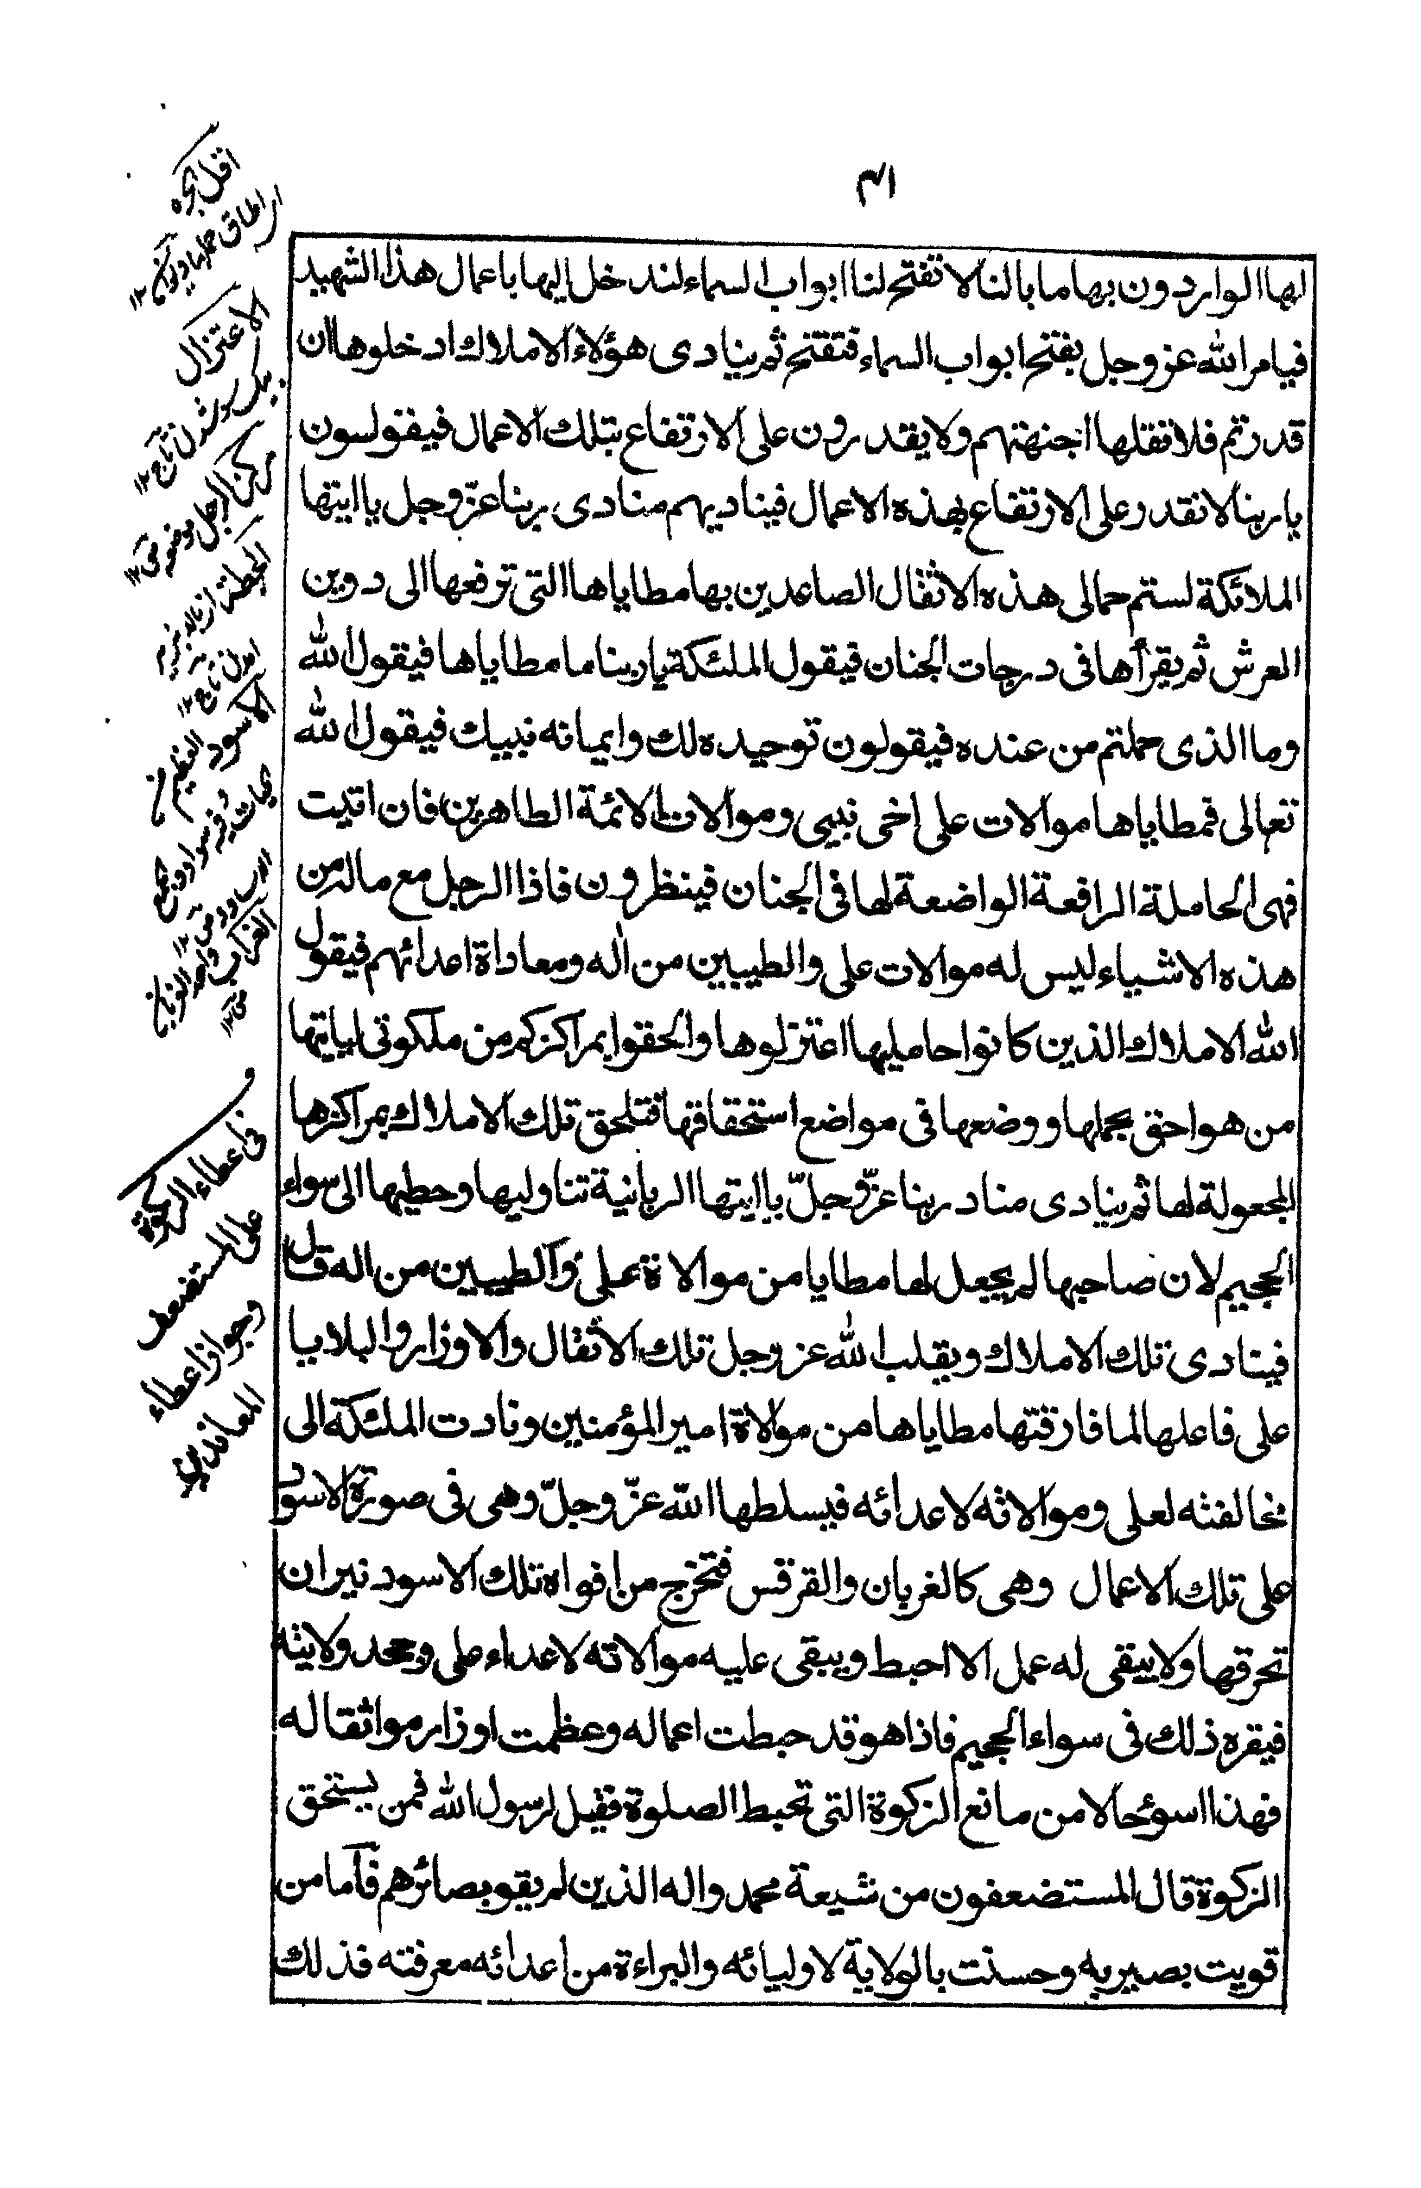 ٤١
لها الواردون بها ما بالنا لا تفتح لنا ابواب السماء لندخل اليها باعمال هذا الشهيد
فيامر الله عز وجل بفتح ابواب السماء فتفتح ثم ينادى هؤلاء الاملاك ادخلوها ان
قدرتم فلا تقلها اجنحتهم ولا يقدرون على الارتفاع بتلك الاعمال فيقولون
يا ربنا لا نقدر على الارتفاع بهذه الاعمال فيناديهم منادى ربنا عزّ وجل يا ايتها
الملائكة لستم حمالى هذه الاثقال الصاعدين بها مطاياها التى ترفعها الى دوين
العرش ثم يقرأها فى درجات الجنان فيقول الملئكة يا ربنا ما مطاياها فيقول الله
وما الذى حملتم من عنده فيقولون توحيده لك وايمانه نبيك فيقول الله
تعالى فمطاياها موالات على اخى نبيى وموالات الائمة الطاهرين فان اتيت
فهى الحاملة الرافعة الواضعة لها فى الجنان فينظرون فاذا الرجل مع ماله من
هذه الاشياء ليس له موالات على والطيبين من اله ومعاداة اعدائهم فيقول
الله الاملاك الذين كانوا حامليها اعتزلوها والحقوا بمراكزكم من ملكوتى لياتيها
من هو احق بحملها ووضعها فى مواضع استحقاقها فتلحق تلك الاملاك بمراكزها
المجعولة لها ثم ينادى مناد ربنا عزّ وجلّ يا ايتها الربانية تناوليها وحطيها الى سواء
الجحيم لان صاحبها لم يجعل لها مطايا من موالاة على والطيبين من اله قال
فينادى تلك الاملاك ويقلب الله عز وجل تلك الاثقال والاوزار والبلايا
على فاعلها لما فارقتها مطاياها من موالاة امير المؤمنين ونادت الملئكة الى
مخالفته لعلى وموالاته لاعدائه فيسلطها الله عزّ وجلّ وهى فى صورة الاسود
على تلك الاعمال وهى كالغربان والقرقس فتخرج من افواه تلك الاسود نيران
تحرقها ولا يبقى له عمل الا احبط ويبقى عليه موالاته لاعداء على وجحد ولايته
فيقره ذلك فى سواء الجحيم فاذا هو قد حبطت اعماله وعظمت اوزاره واثقاله
فهذا اسوء حالا من مانع الزكوة التى تحبط الصلوة فقيل لرسول الله فمن يستحق
الزكوة قال المستضعفون من شيعة محمد واله الذين لم يقو بصائرهم فاما من
قويت بصيرته وحسنت بالولاية لاوليائه والبراءة من اعدائه معرفته فذلك
الاعتزال
مركز الرجل موضعه
الاسود العظيم من
الحيات وفيه سواد
فى اعطاء الزكوة
على المستضعف
وجواز اعطاء
المعاندين